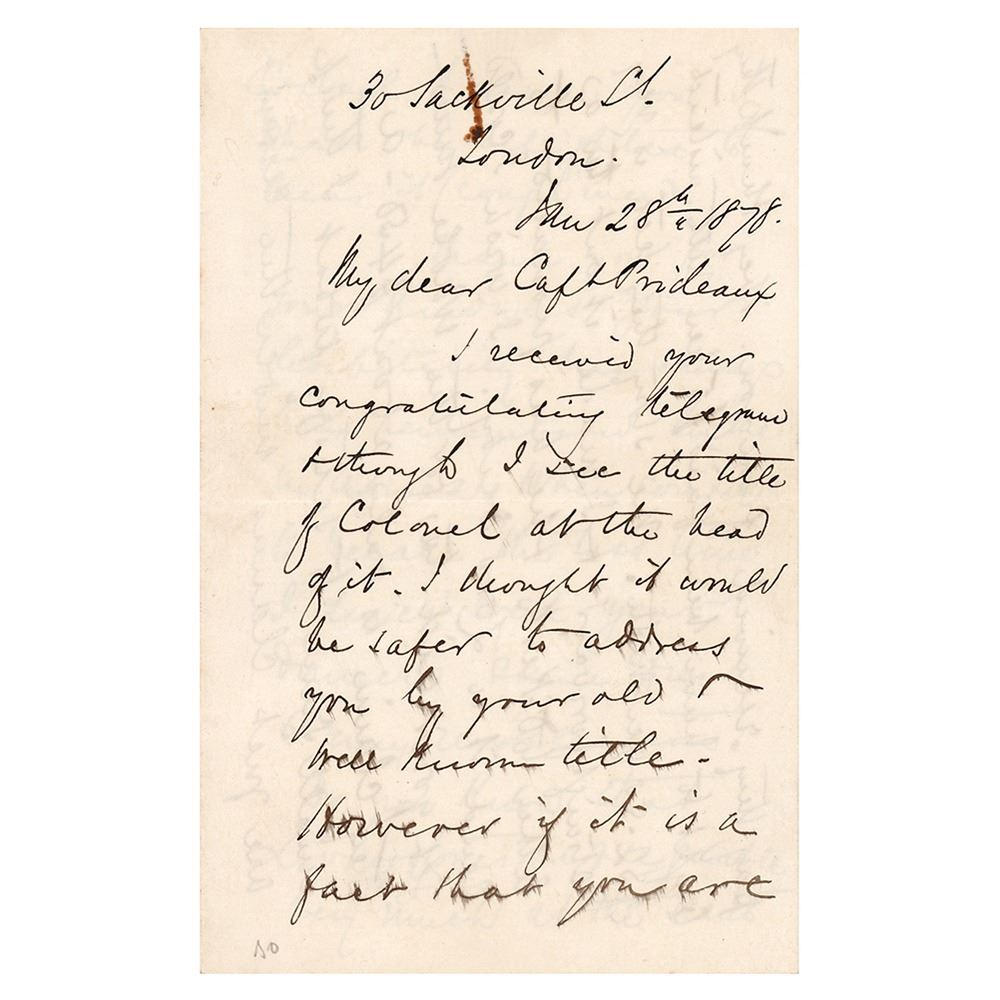 30 Sackville St.
London.
Jan 28th 1878.
My dear Capt Prideaux
I received your
congratulating telegram
& though I see the title
of Colonel at the head
of it. I thought it would
be safer to address
you by your old &
well known title.
However if it is a
fact that you are